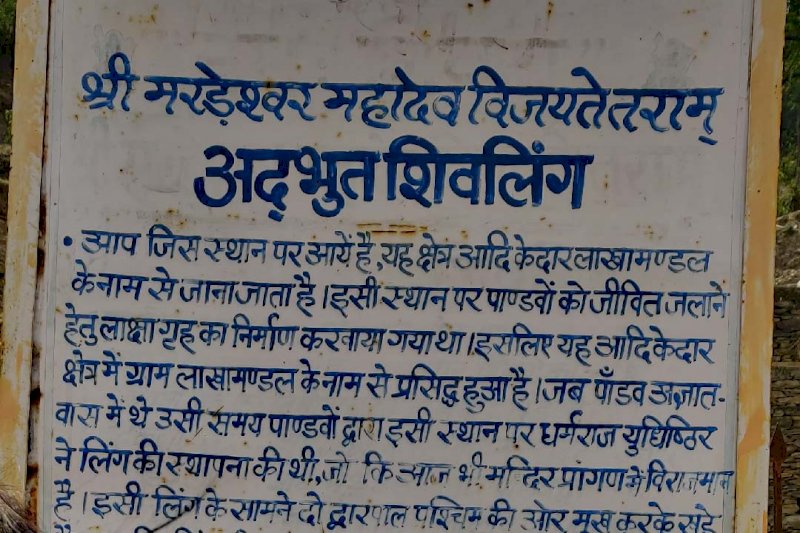 श्री मरड़ेश्वर महादेव विजयतेतराम्
अद्भुत शिवलिंग
• आप जिस स्थान पर आयें है, यह क्षेत्र आदि केदार लाखामण्डल
के नाम से जाना जाता है। इसी स्थान पर पाण्डवों को जीवित जलाने
हेतु लाक्षा गृह का निर्माण करवाया गया था। इसलिए यह आदिकेदार
क्षेत्र में ग्राम लाखामण्डल के नाम से प्रसिद्ध हुआ है। जब पाँडव अज्ञात-
वास में थे उसी समय पाण्डवों द्वारा इसी स्थान पर धर्मराज युधिष्ठिर
ने लिंग की स्थापना की थी, जो कि आज भी मन्दिर प्रांगण में विराजमान
है। इसी लिंग के सामने दो द्वारपाल पश्चिम की ओर मुख करके खड़े